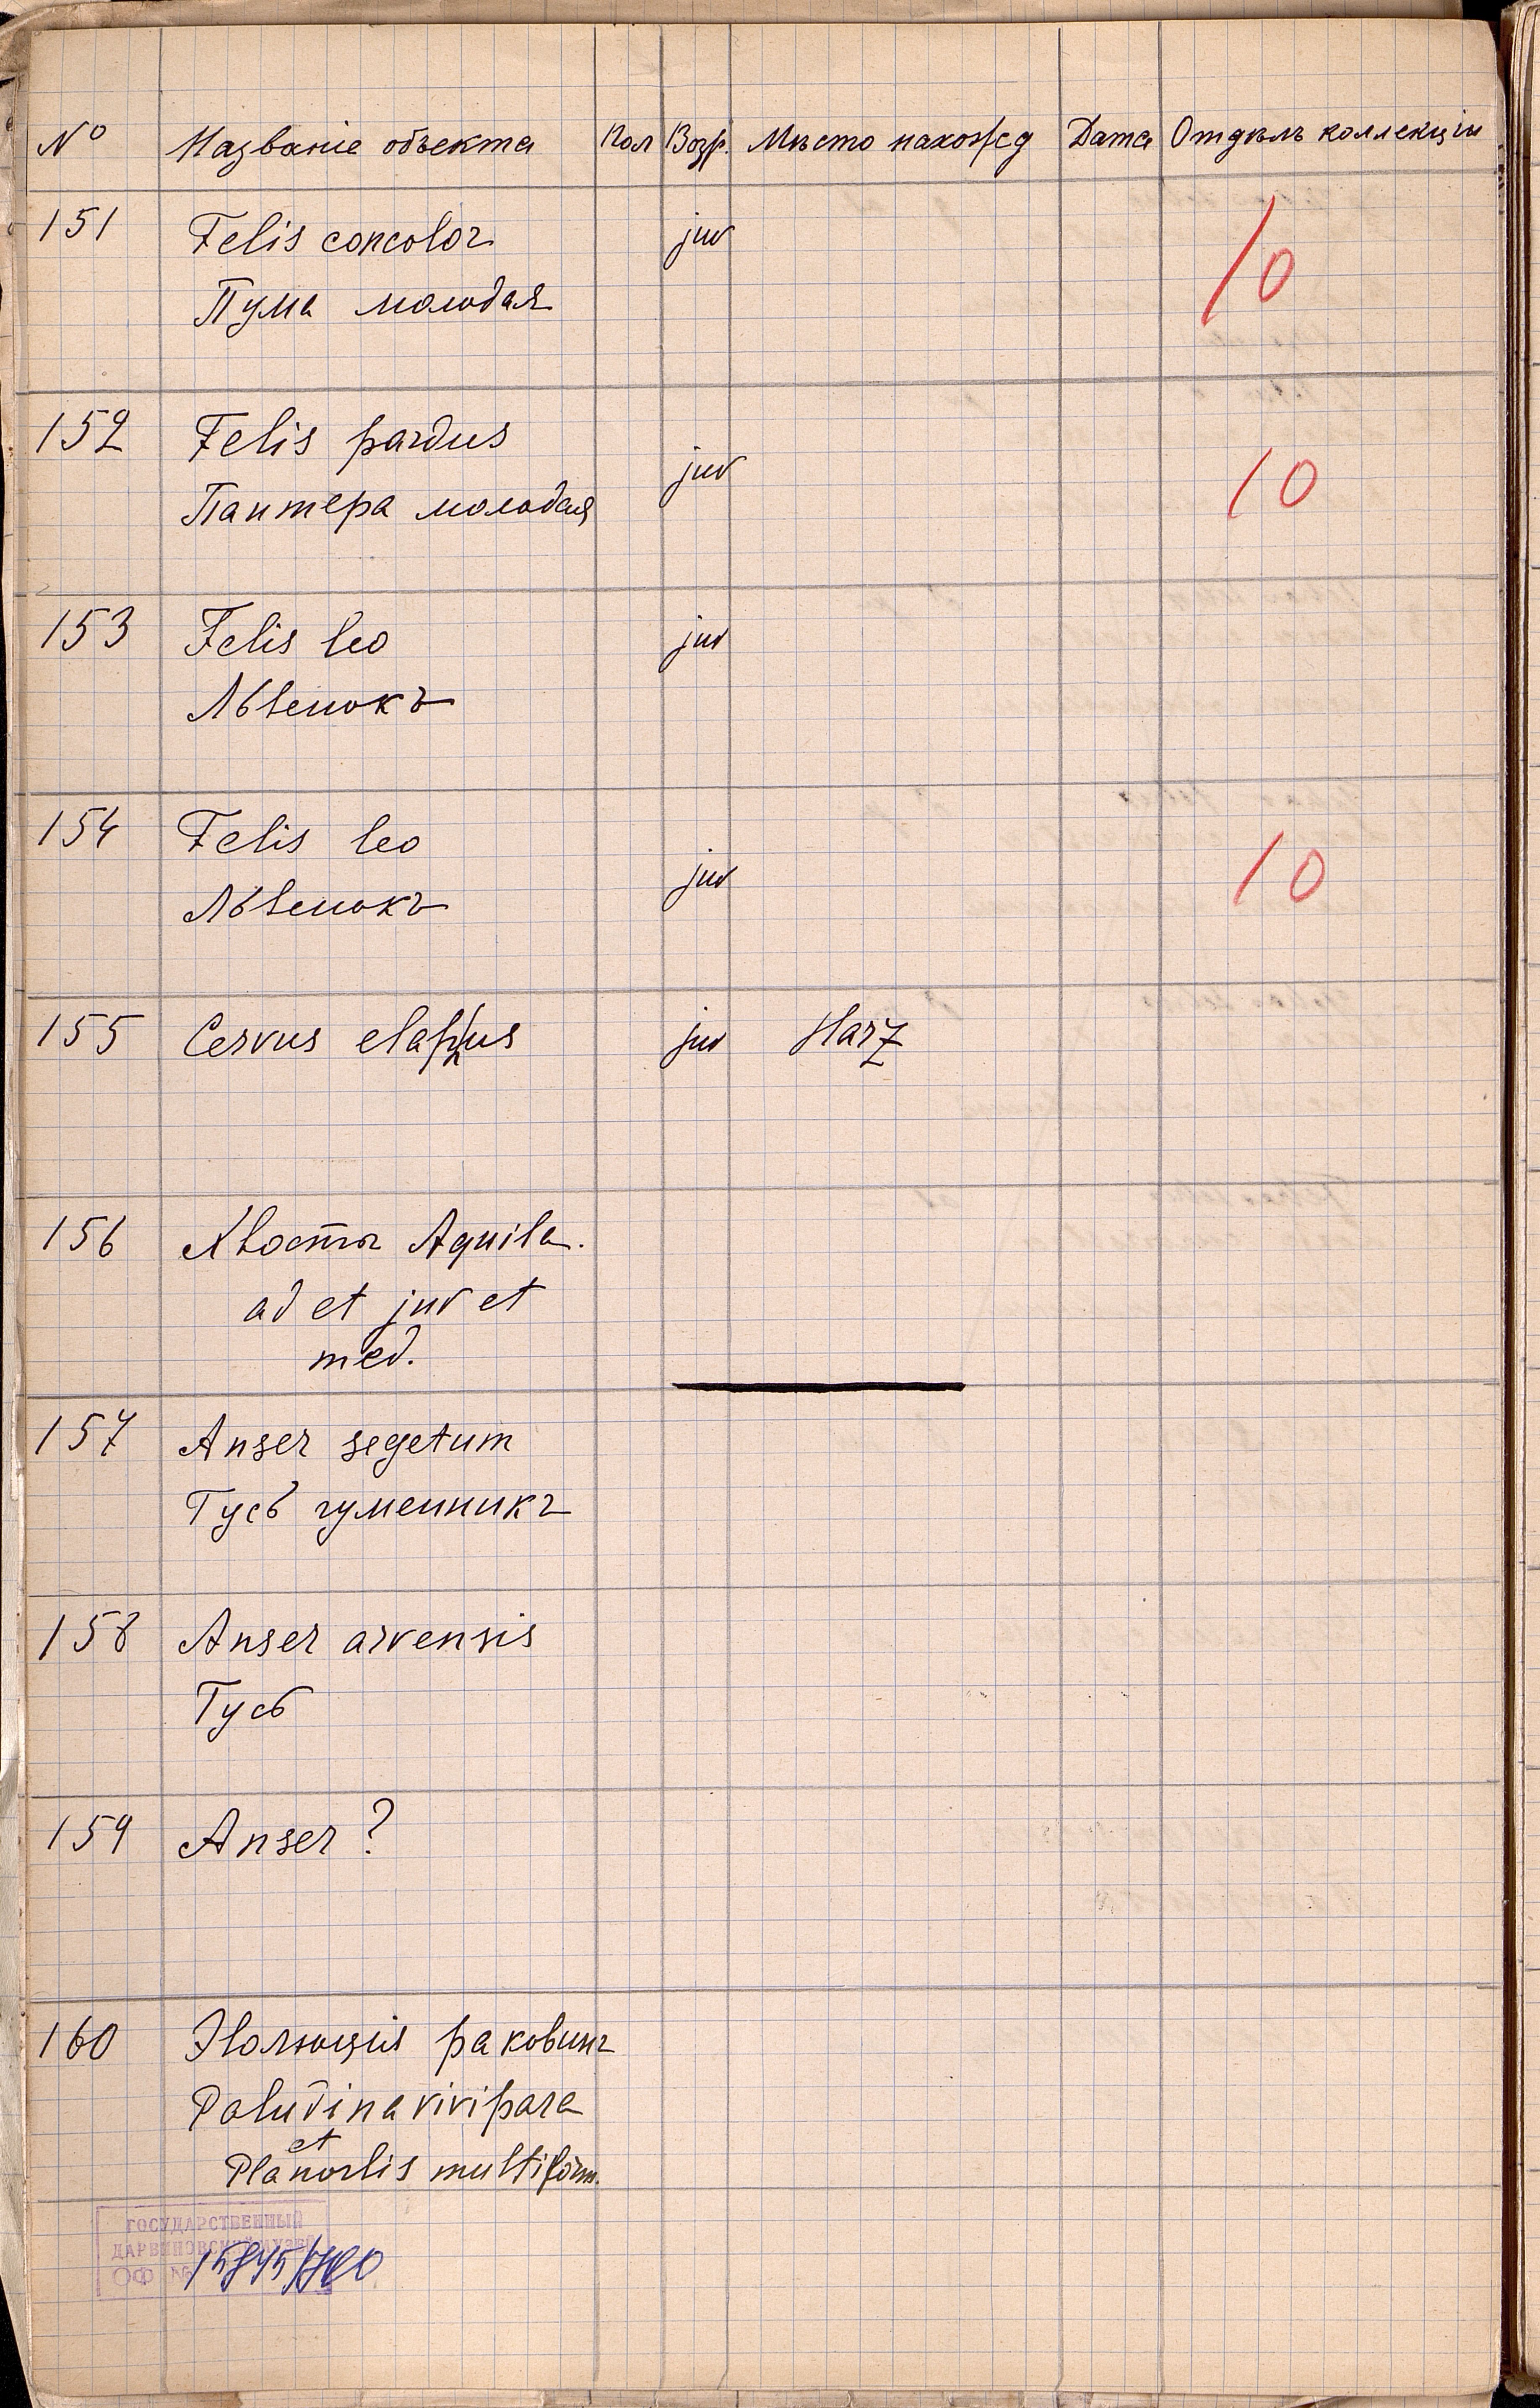 № Названіе объекта Пол Возр. Мѣсто нахожд Дата Отдѣлъ коллекціи
151 Felis concolor juv 10
Пума молодая
152 Felis pardus juv 10
Пантера молодая
153 Felis leo juv
Львенокъ
154 Felis leo juv 10
Львенокъ
155 Cervus elaphus juv Harz
156 Хвостъ Aquila.
ad et juv et
med.
157 Anser segetum
Гусь гуменникъ
158 Anser arvensis
Гусь
159 Anser ?
160 Эволюція раковинъ
Paludina vivipara
et
Planorbis multiform.
ГОСУДАРСТВЕННЫЙ
ДАРВИНОВСКИЙ МУЗЕЙ
ОФ №